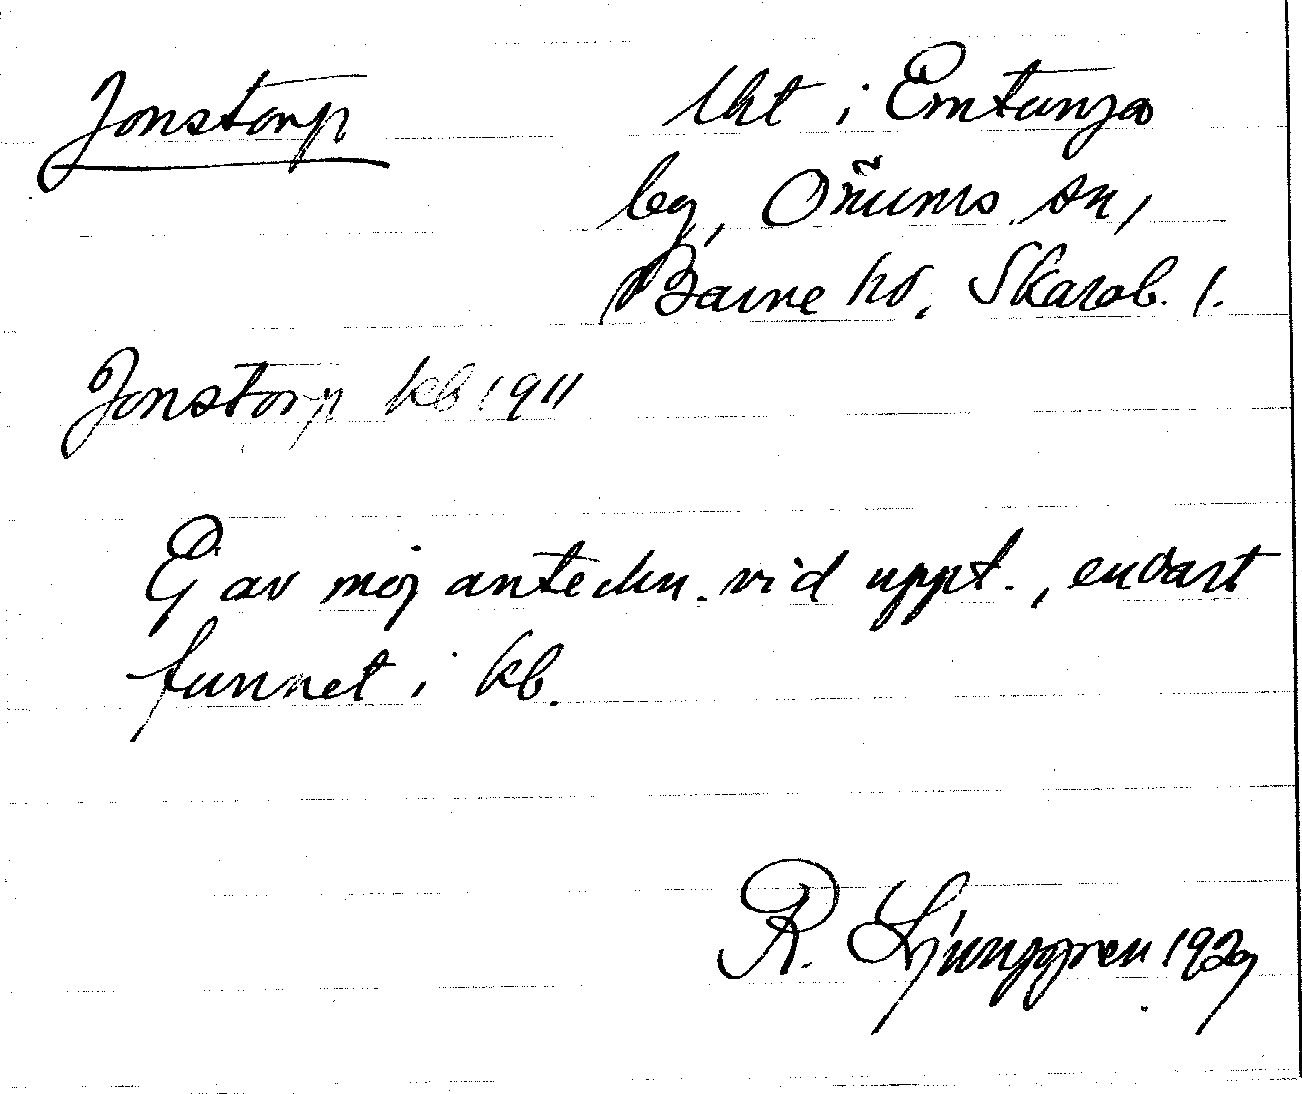 Jonstorp
lht i Emtunga
by, Önums sn,
Barne hd, Skarab. l.
Jonstorp kb 1911
Ej av mig anteckn. vid uppt., endast
funnet i kb.
R. Ljunggren 1929